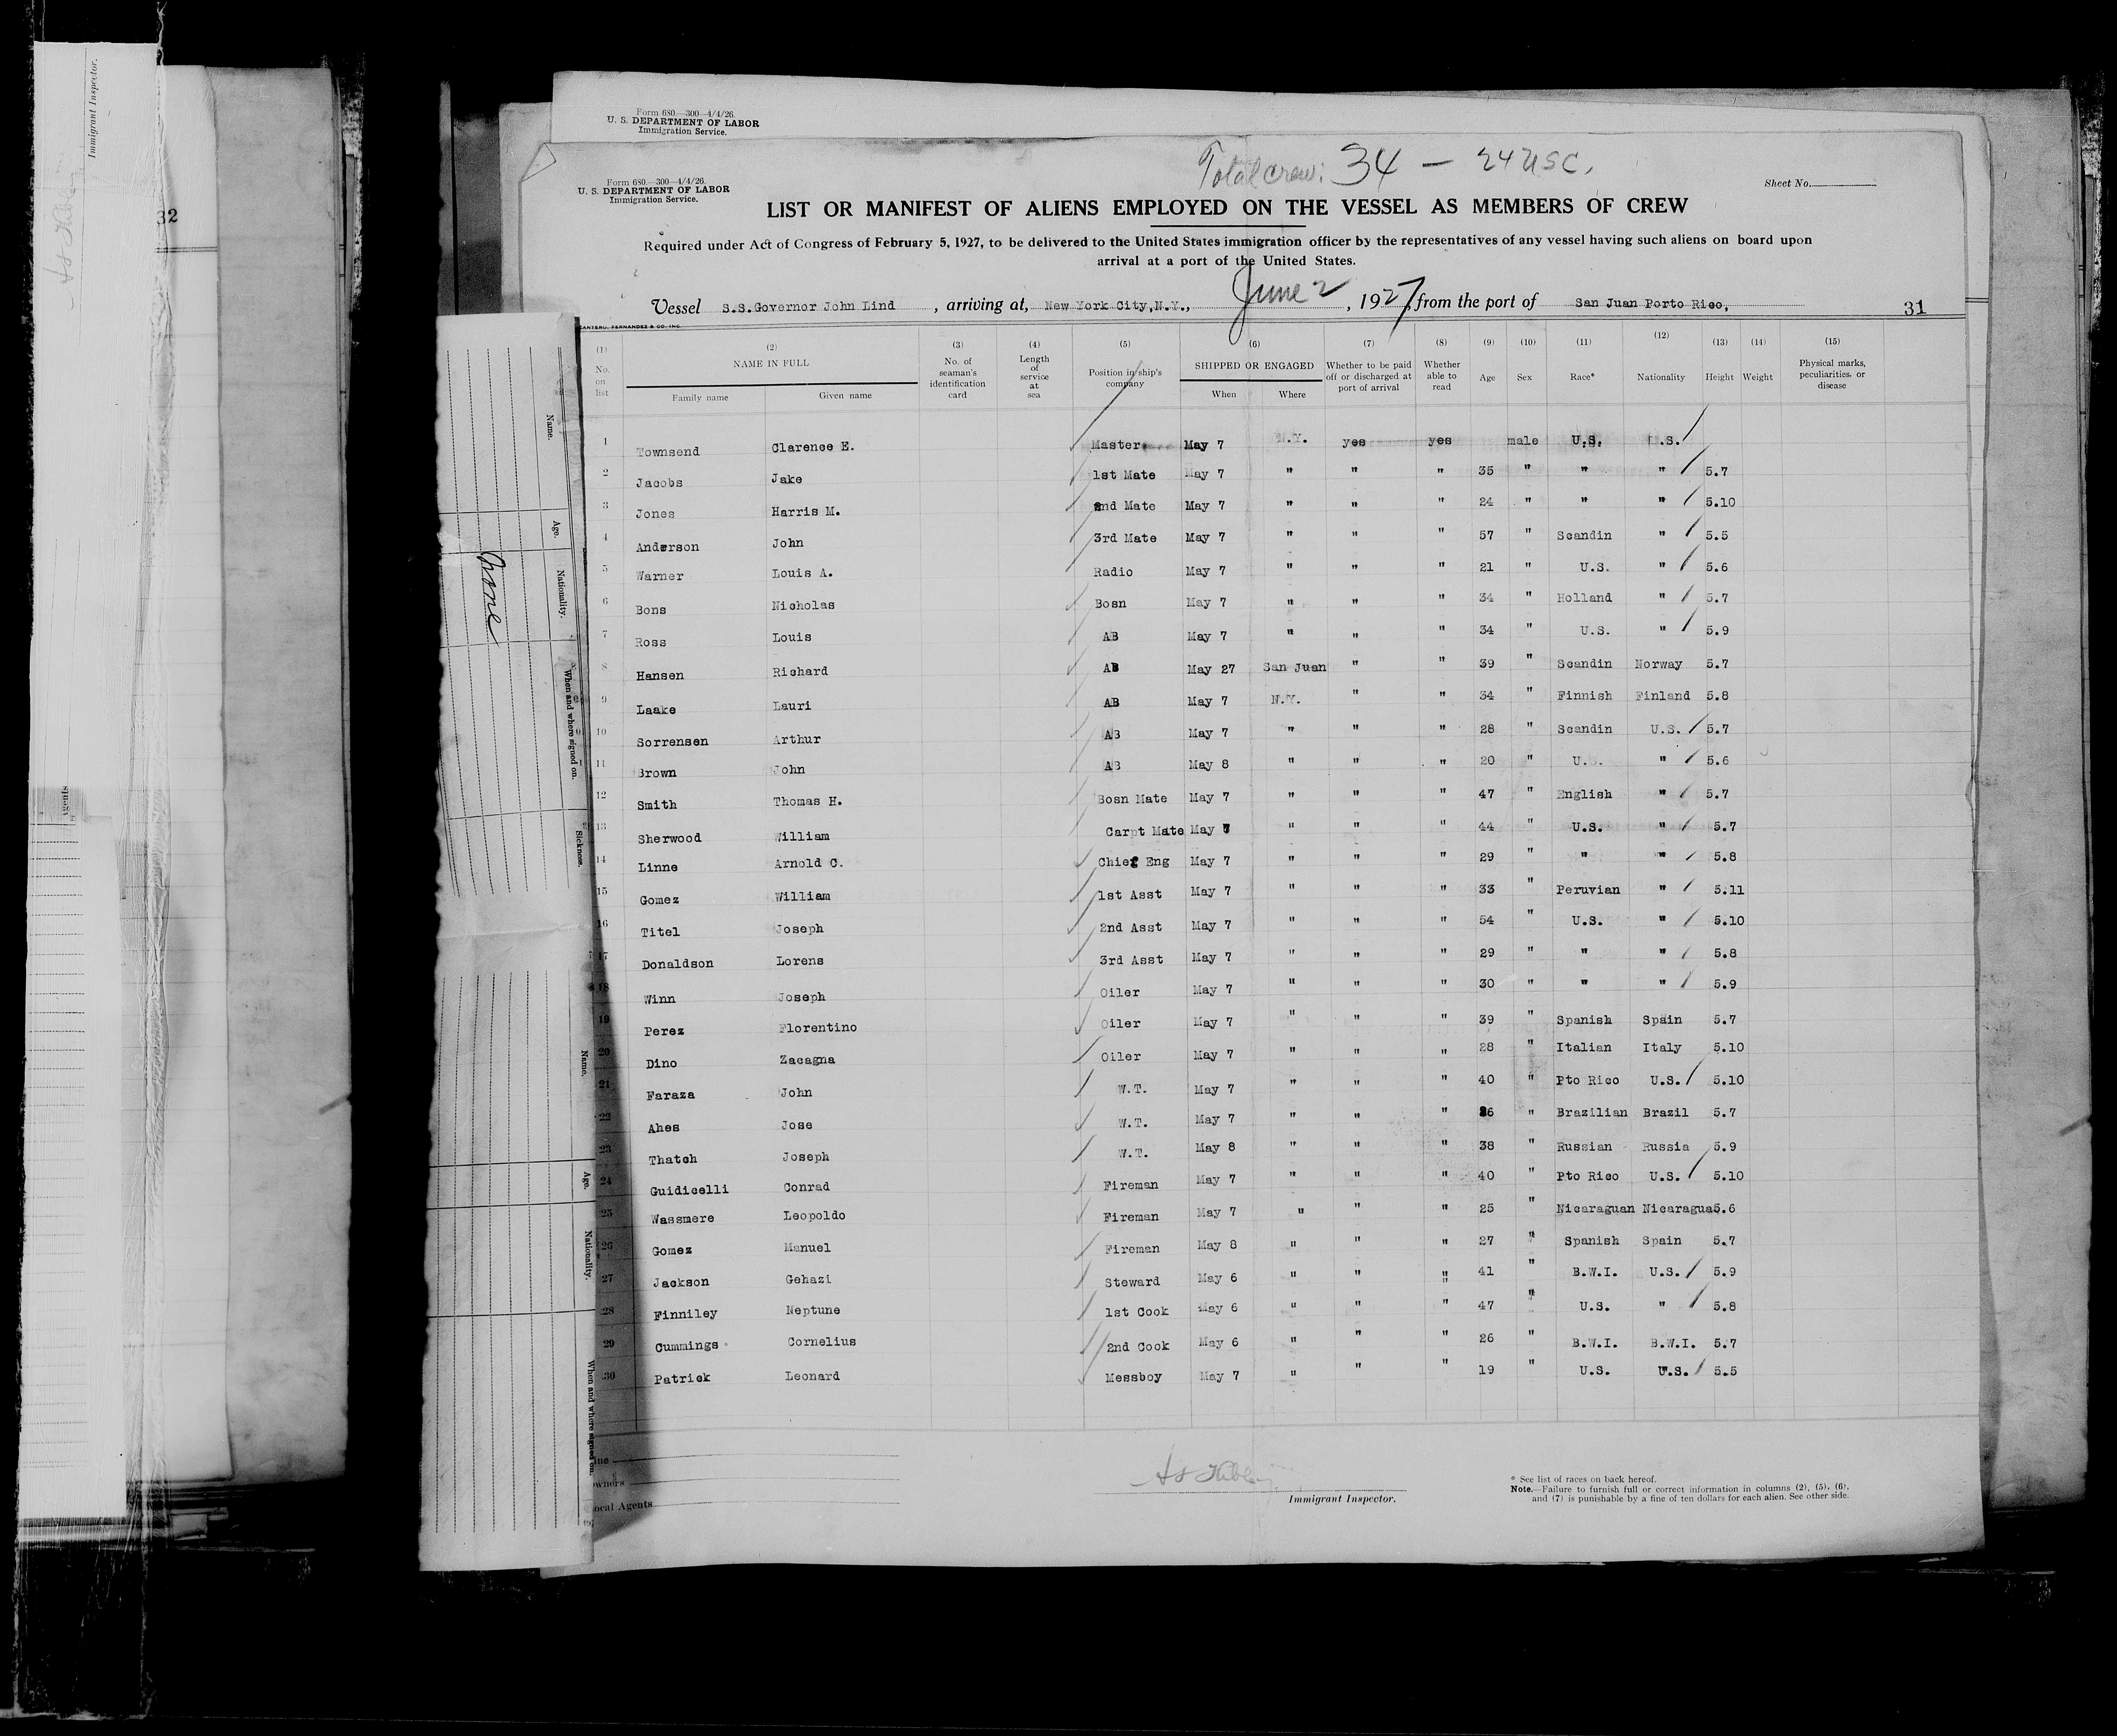 Immigrant Inspector.
32
Agents
Form 680.—300—4/4/26.
U. S. DEPARTMENT OF LABOR
Immigration Service.
Total crew: 34 — 24 USC.
Form 680.—300—4/4/26.
U. S. DEPARTMENT OF LABOR
Immigration Service.
Sheet No.
LIST OR MANIFEST OF ALIENS EMPLOYED ON THE VESSEL AS MEMBERS OF CREW
Required under Act of Congress of February 5, 1927, to be delivered to the United States immigration officer by the representatives of any vessel having such aliens on board upon
arrival at a port of the United States.
Vessel S.S.Governor John Lind, arriving at, New York City,N.Y., June 2, 1927, from the port of San Juan Porto Rico, 31
CANTERO, FERNANDEZ & CO. INC.
(1) No. on list (2) NAME IN FULL Family name Given name (3) No. of seaman's identification card (4) Length of service at sea (5) Position in ship's company (6) SHIPPED OR ENGAGED When Where (7) Whether to be paid off or discharged at port of arrival (8) Whether able to read (9) Age (10) Sex (11) Race* (12) Nationality (13) Height (14) Weight (15) Physical marks, peculiarities, or disease
1 Townsend Clarence E. Master May 7 N.Y. yes yes male U.S. U.S.
2 Jacobs Jake 1st Mate May 7 " " " 35 " " " 5.7
3 Jones Harris M. 2nd Mate May 7 " " " 24 " " " 5.10
4 Anderson John 3rd Mate May 7 " " " 57 " Scandin " 5.5
5 Warner Louis A. Radio May 7 " " " 21 " U.S. " 5.6
6 Bons Nicholas Bosn May 7 " " " 34 " Holland " 5.7
7 Ross Louis AB May 7 " " " 34 " U.S. " 5.9
8 Hansen Richard AB May 27 San Juan " " 39 " Scandin Norway 5.7
9 Laake Lauri AB May 7 N.Y. " " 34 " Finnish Finland 5.8
10 Sorrensen Arthur AB May 7 " " " 28 " Scandin U.S. 5.7
11 Brown John AB May 8 " " " 20 " U.S. " 5.6
12 Smith Thomas H. Bosn Mate May 7 " " " 47 " English " 5.7
13 Sherwood William Carpt Mate May 7 " " " 44 " U.S. " 5.7
14 Linne Arnold C. Chief Eng May 7 " " " 29 " " " 5.8
15 Gomez William 1st Asst May 7 " " " 33 " Peruvian " 5.11
16 Titel Joseph 2nd Asst May 7 " " " 54 " U.S. " 5.10
17 Donaldson Lorens 3rd Asst May 7 " " " 29 " " " 5.8
18 Winn Joseph Oiler May 7 " " " 30 " " " 5.9
19 Perez Florentino Oiler May 7 " " " 39 " Spanish Spain 5.7
20 Dino Zacagna Oiler May 7 " " " 28 " Italian Italy 5.10
21 Faraza John W.T. May 7 " " " 40 " Pto Rico U.S. 5.10
22 Ahes Jose W.T. May 7 " " " " Brazilian Brazil 5.7
23 Thatch Joseph W.T. May 8 " " " 38 " Russian Russia 5.9
24 Guidicelli Conrad Fireman May 7 " " " 40 " Pto Rico U.S. 5.10
25 Wassmere Leopoldo Fireman May 7 " " " 25 " Nicaraguan Nicaragua 5.6
26 Gomez Manuel Fireman May 8 " " " 27 " Spanish Spain 5.7
27 Jackson Gehazi Steward May 6 " " " 41 " B.W.I. U.S. 5.9
28 Finniley Neptune 1st Cook May 6 " " " 47 " U.S. " 5.8
29 Cummings Cornelius 2nd Cook May 6 " " " 26 " B.W.I. B.W.I. 5.7
30 Patrick Leonard Messboy May 7 " " " 19 " U.S. U.S. 5.5
Immigrant Inspector.
* See list of races on back hereof.
Note.—Failure to furnish full or correct information in columns (2), (5), (6),
and (7) is punishable by a fine of ten dollars for each alien. See other side.
Owners
Local Agents
Name.
Age.
Nationality.
When and where signed on.
Sickness.
None
Name.
Age.
Nationality.
When and where signed on.